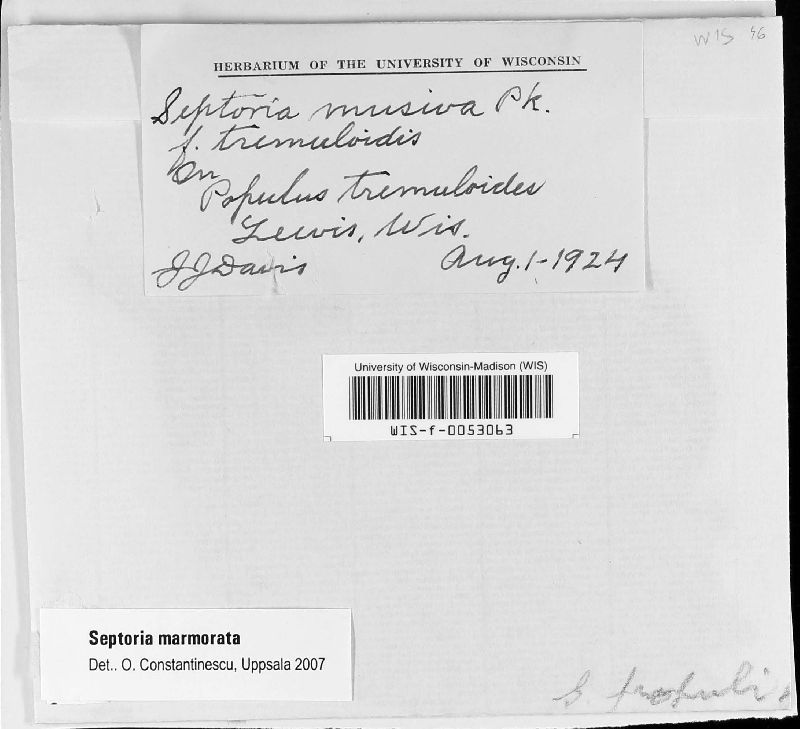 WIS 46
HERBARIUM OF THE UNIVERSITY OF WISCONSIN
Septoria musiva Pk.
f. tremuloidis
on
Populus tremuloides
Lewis, Wis.
JJDavis Aug. 1-1924
University of Wisconsin-Madison (WIS)
WIS-f-0053063
Septoria marmorata
Det.. O. Constantinescu, Uppsala 2007
S. populi